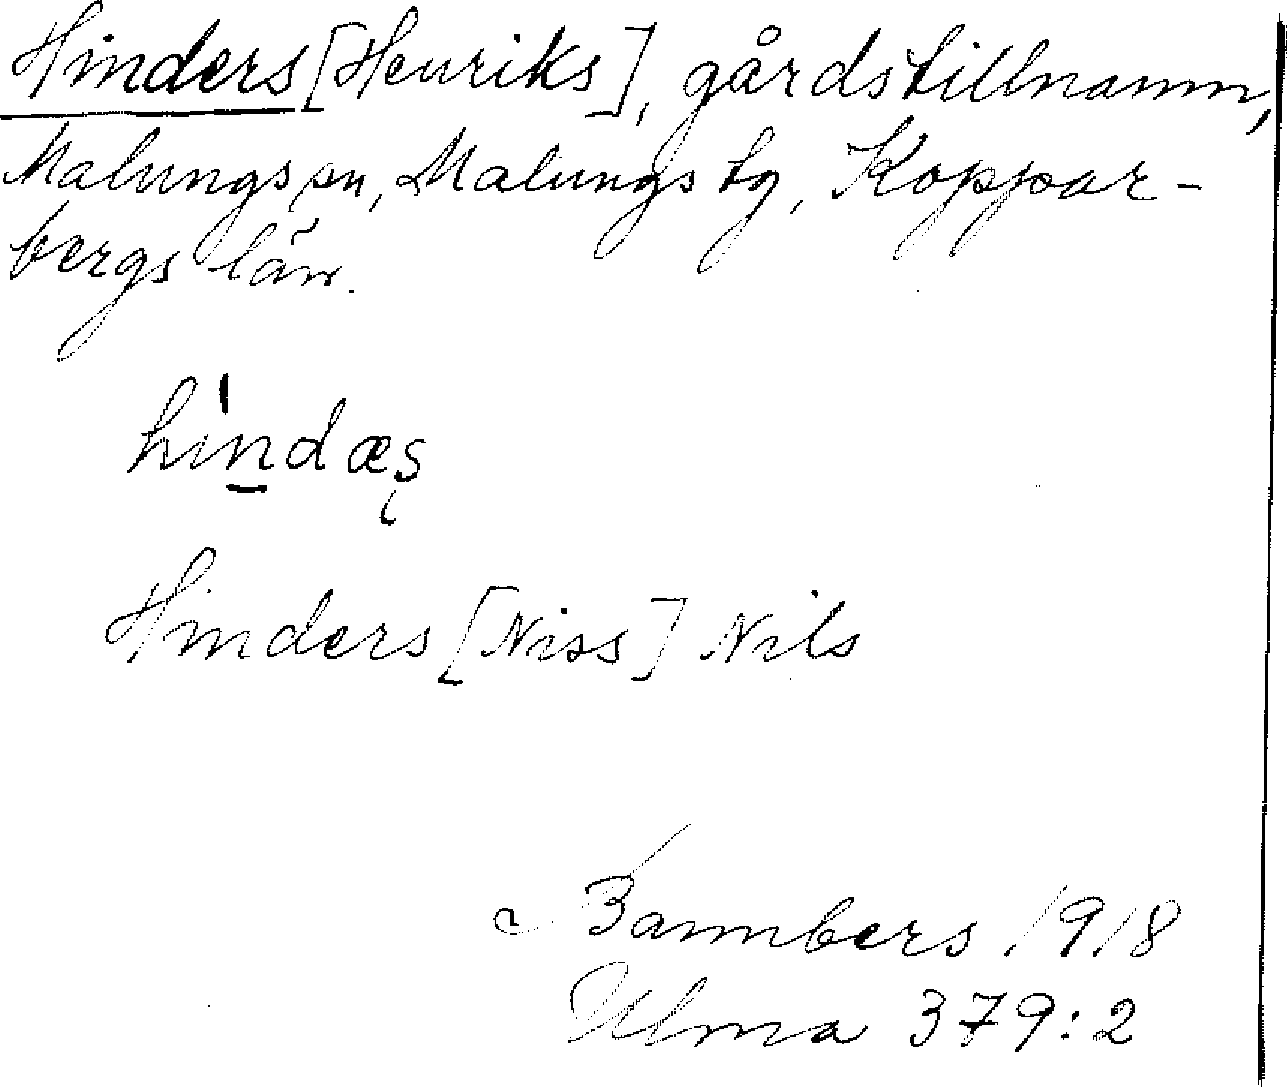 Hinders [Henriks], gårdstillnamn,
Malungs sn, Malungs tg, Koppar-
bergs län.
hịndæş
Hinders [Niss] Nils
Bannbers 1918
Ulma 379:2